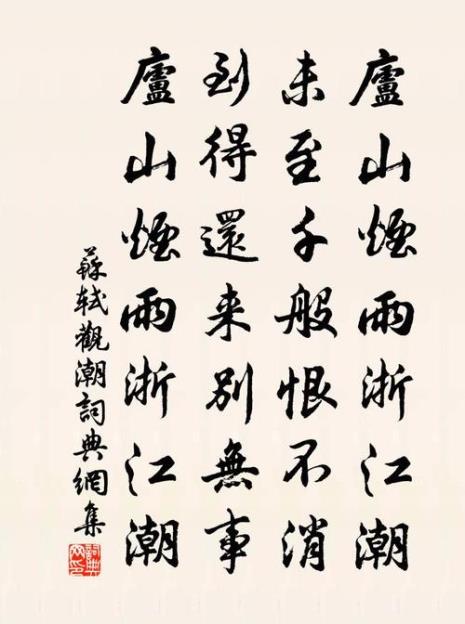 廬山煙雨浙江潮
未至千般恨不消
到得還来別無事
廬山煙雨浙江潮
蘇軾觀潮詞典網集
詞典網印